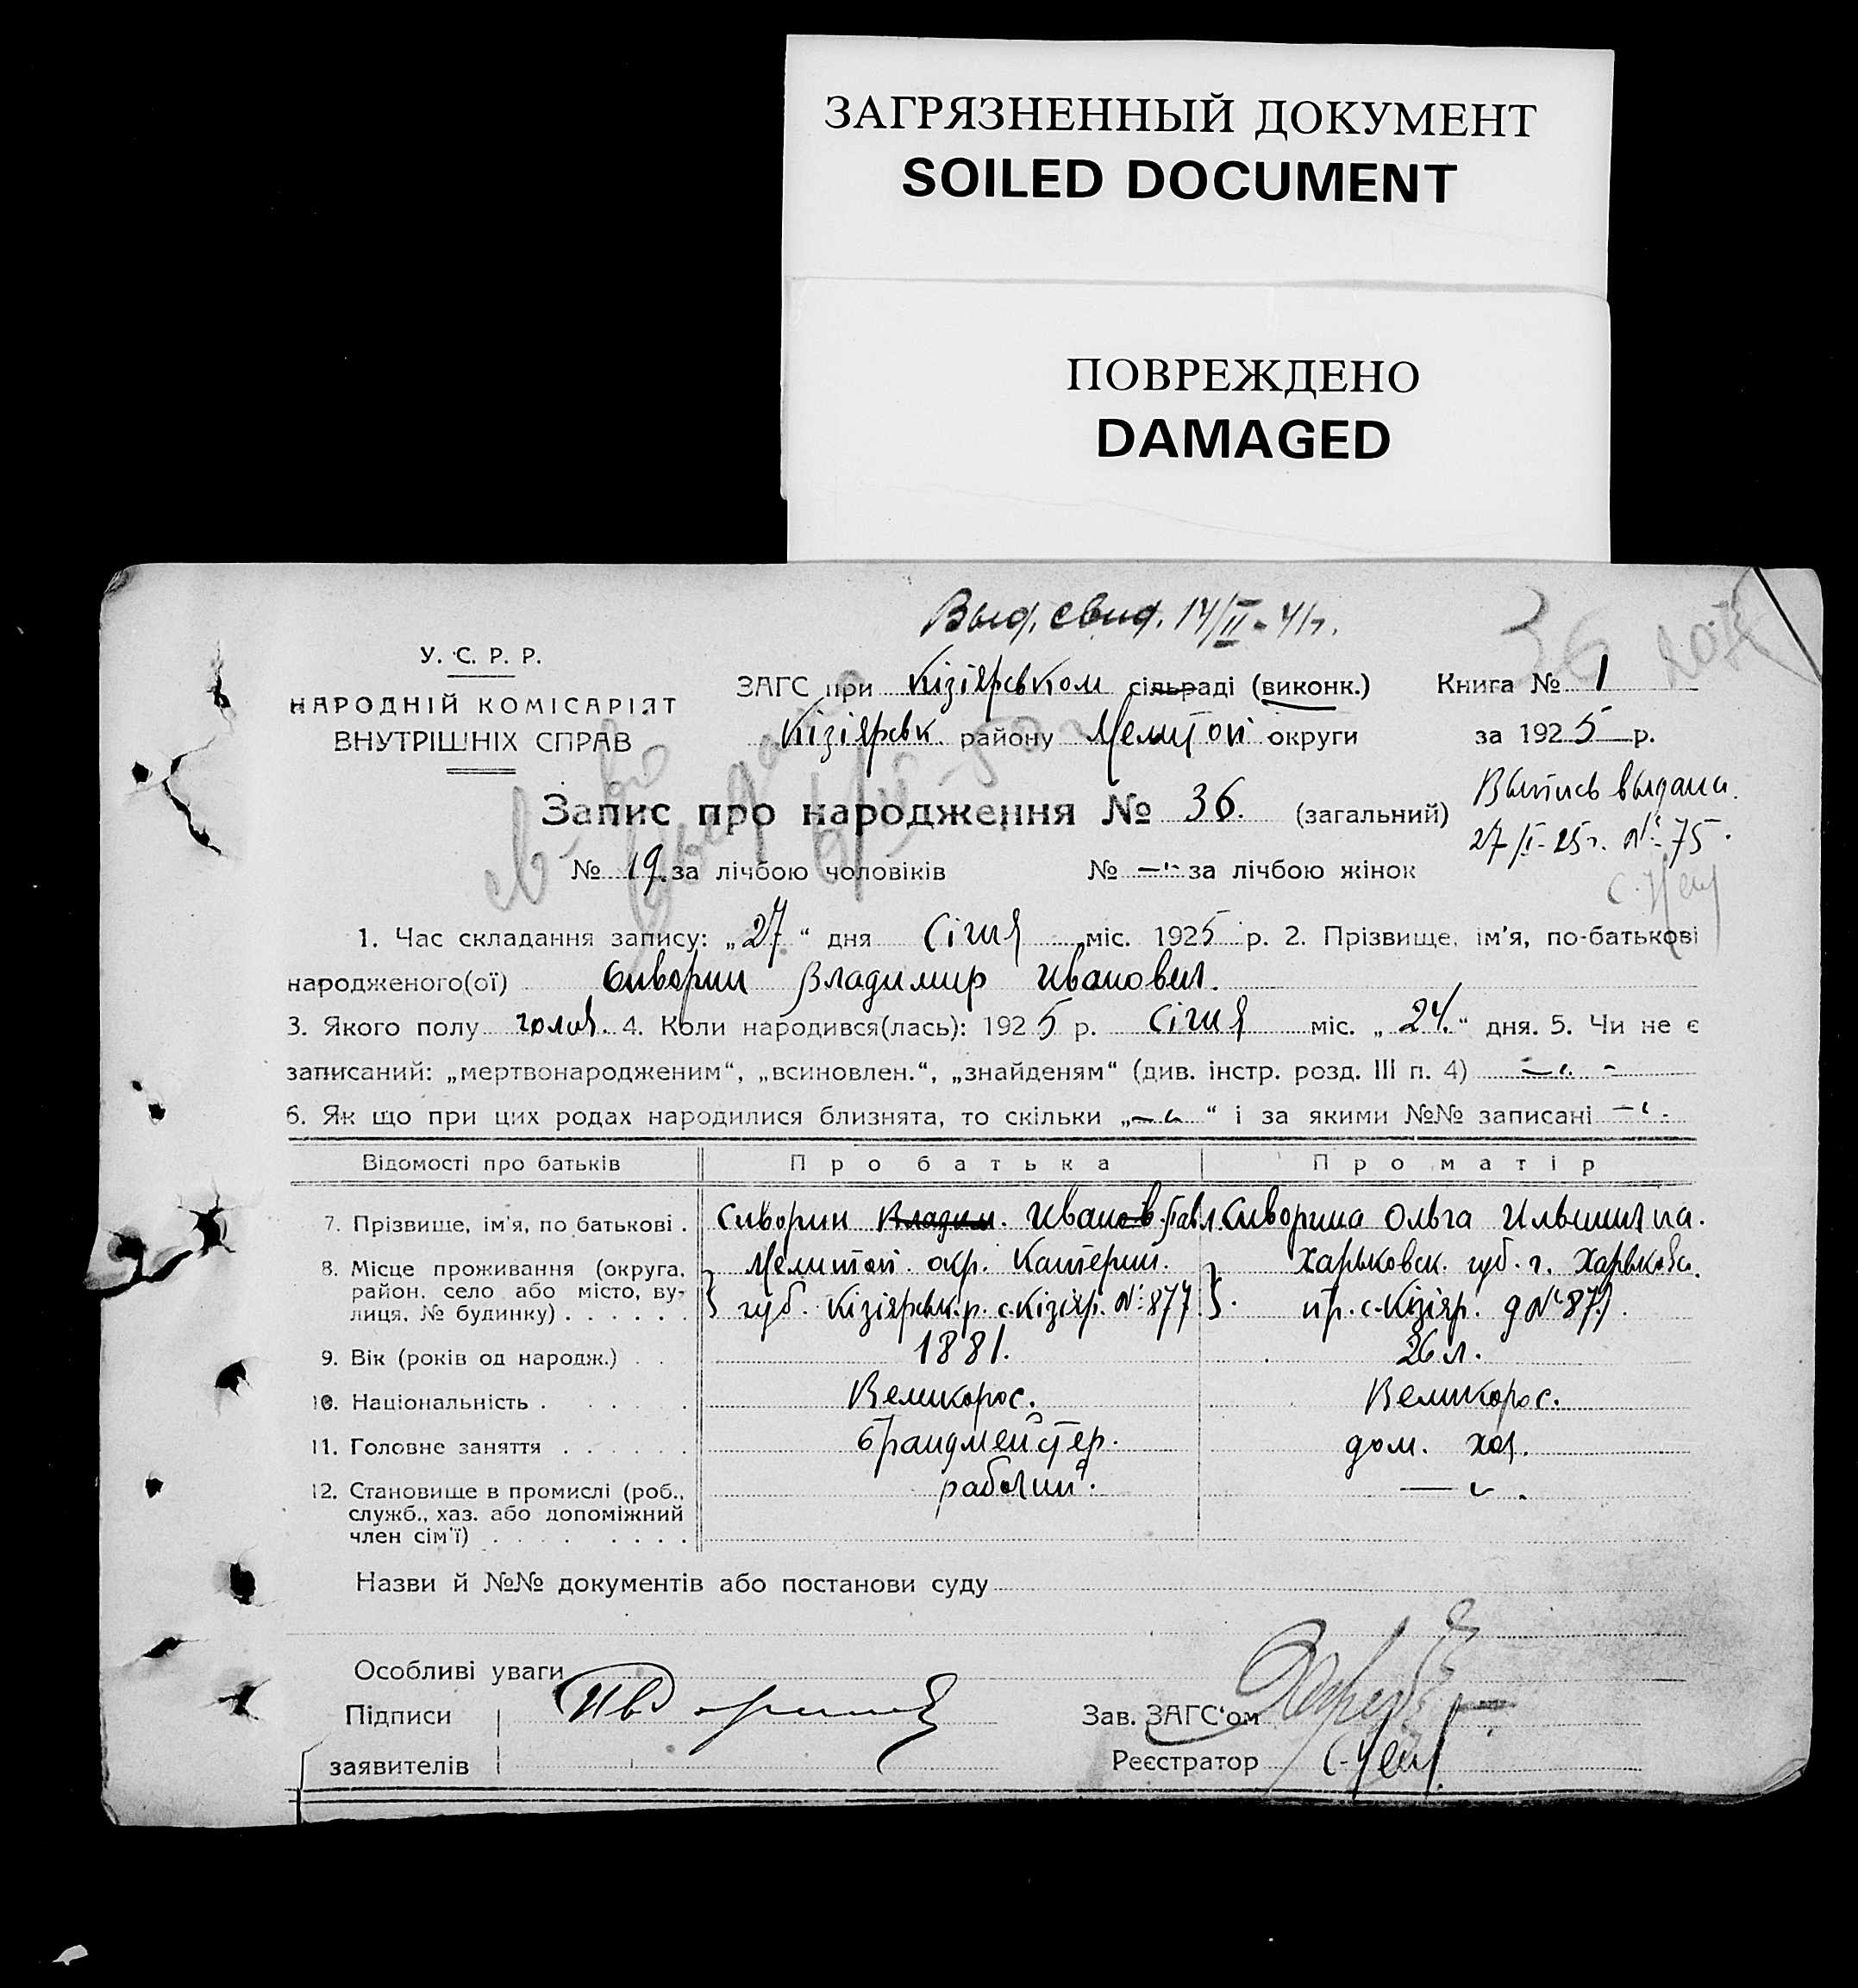 ЗАГРЯЗНЕННЫЙ ДОКУМЕНТ
SOILED DOCUMENT
ПОВРЕЖДЕНО
DAMAGED
Выд. свид. 14/II-41г.
36
У. С. Р. Р.
НАРОДНІЙ КОМІСАРІЯТ
ВНУТРІШНІХ СПРАВ
ЗАГС при Кізіярськом сільраді (виконк.) Книга № 1
Кізіярськ району Мелитоп округи за 1925 р.
Выпись выдана.
27/I-25г. №75.
Запис про народження № 36. (загальний)
№ 19. за лічбою чоловіків № —"— за лічбою жінок
1. Час складання запису: „27" дня Січня міс. 1925 р. 2. Прізвище, ім'я, по-батькові
народженого(ої) Сиворин Владимир Иванович.
3. Якого полу чолов. 4. Коли народився(лась): 1925 р. Січня міс. „24." дня. 5. Чи не є
записаний: „мертвонародженим", „всиновлен.", „знайденям" (див. інстр. розд. III п. 4) —"—
6. Як що при цих родах народилися близнята, то скільки „—"—" і за якими №№ записані —"—
Відомості про батьків Про батька Про матір
7. Прізвище, ім'я, по батькові . Сиворин Владим. Иванов. Павл. Сиворина Ольга Ильинична.
8. Місце проживання (округа, Мелитоп. окр. Катерин. Харьковск. губ. г. Харькова
район, село або місто, ву-
лиця, № будинку) . . . . . . губ. Кізіярськ. р. с. Кізіяр. №877 пр. с. Кізіяр. д №877.
9. Вік (років од народж.) . . 1881. 26 л.
10. Національність . . . . . . Великорос. Великорос.
11. Головне заняття . . . . . . брандмейстер. дом. хоз.
12. Становище в промислі (роб., рабочий. —"—.
служб., хаз. або допоміжний
член сім'ї) . . . . . . . .
Назви й №№ документів або постанови суду
Особливі уваги
Підписи Зав. ЗАГС'ом
заявителів Реєстратор